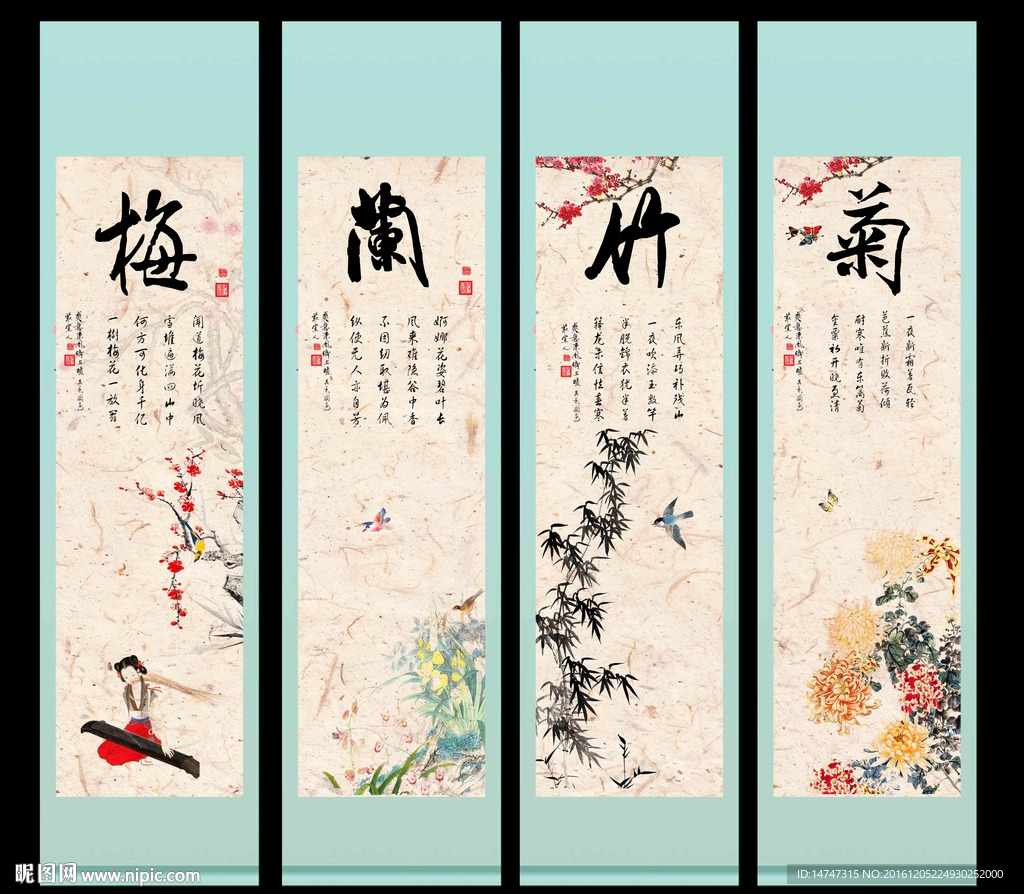 梅
闻道梅花坼晓风
雪堆遍满四山中
何方可化身千亿
一樹梅花一放翁
蘭
婀娜花姿碧叶长
风来难隐谷中香
不因纫取堪为佩
纵使无人亦自芳
竹
东风弄巧补残山
一夜吹添玉数竿
半脱锦衣犹半著
箨龙未信怯春寒
菊
一夜新霜著瓦轻
芭蕉新折败荷倾
耐寒唯有东篱菊
金粟初开晓更清
昵图网 www.nipic.com
ID:14747315 NO:20161205224930252000